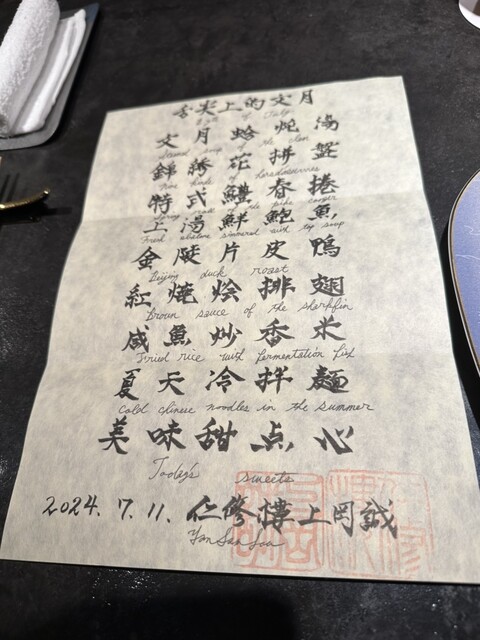 舌尖上的文月
文月蛤炖湯
Steamed soup of the clam
錦繍花拼盤
Nine kinds of hors d'oeuvres
特式鱧春捲
Spring roll of the pike conger
上湯鮮鮑魚
Fresh abalone simmered with top soup
金陵片皮鴨
Beijing duck roast
紅焼烩排翅
Brown sauce of the sharkfin
咸魚炒香米
Fried rice with fermentation fish
夏天冷拌麺
Cold chinese noodles in the summer
美味甜点心
Today's sweets
2024.7.11. 仁修樓上岡誠